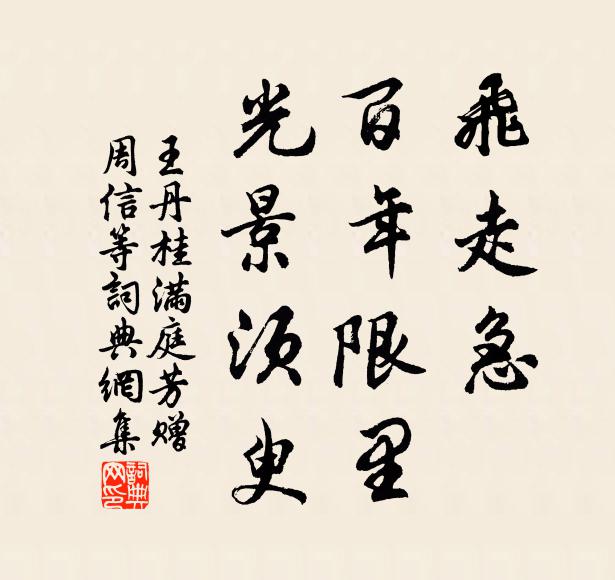 飛走急
百年限里
光景须臾
王丹桂满庭芳赠
周信等詞典網集
詞典
网印